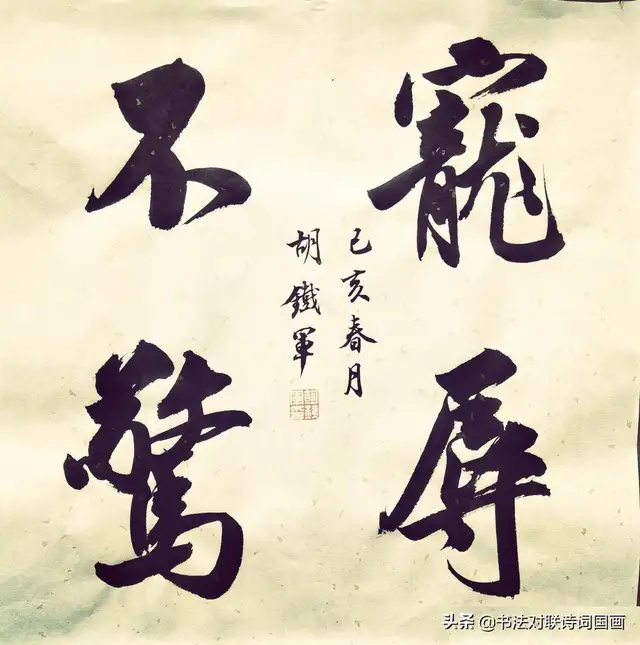 寵辱
不驚
己亥春月
胡鐵軍
头条 @书法对联诗词国画